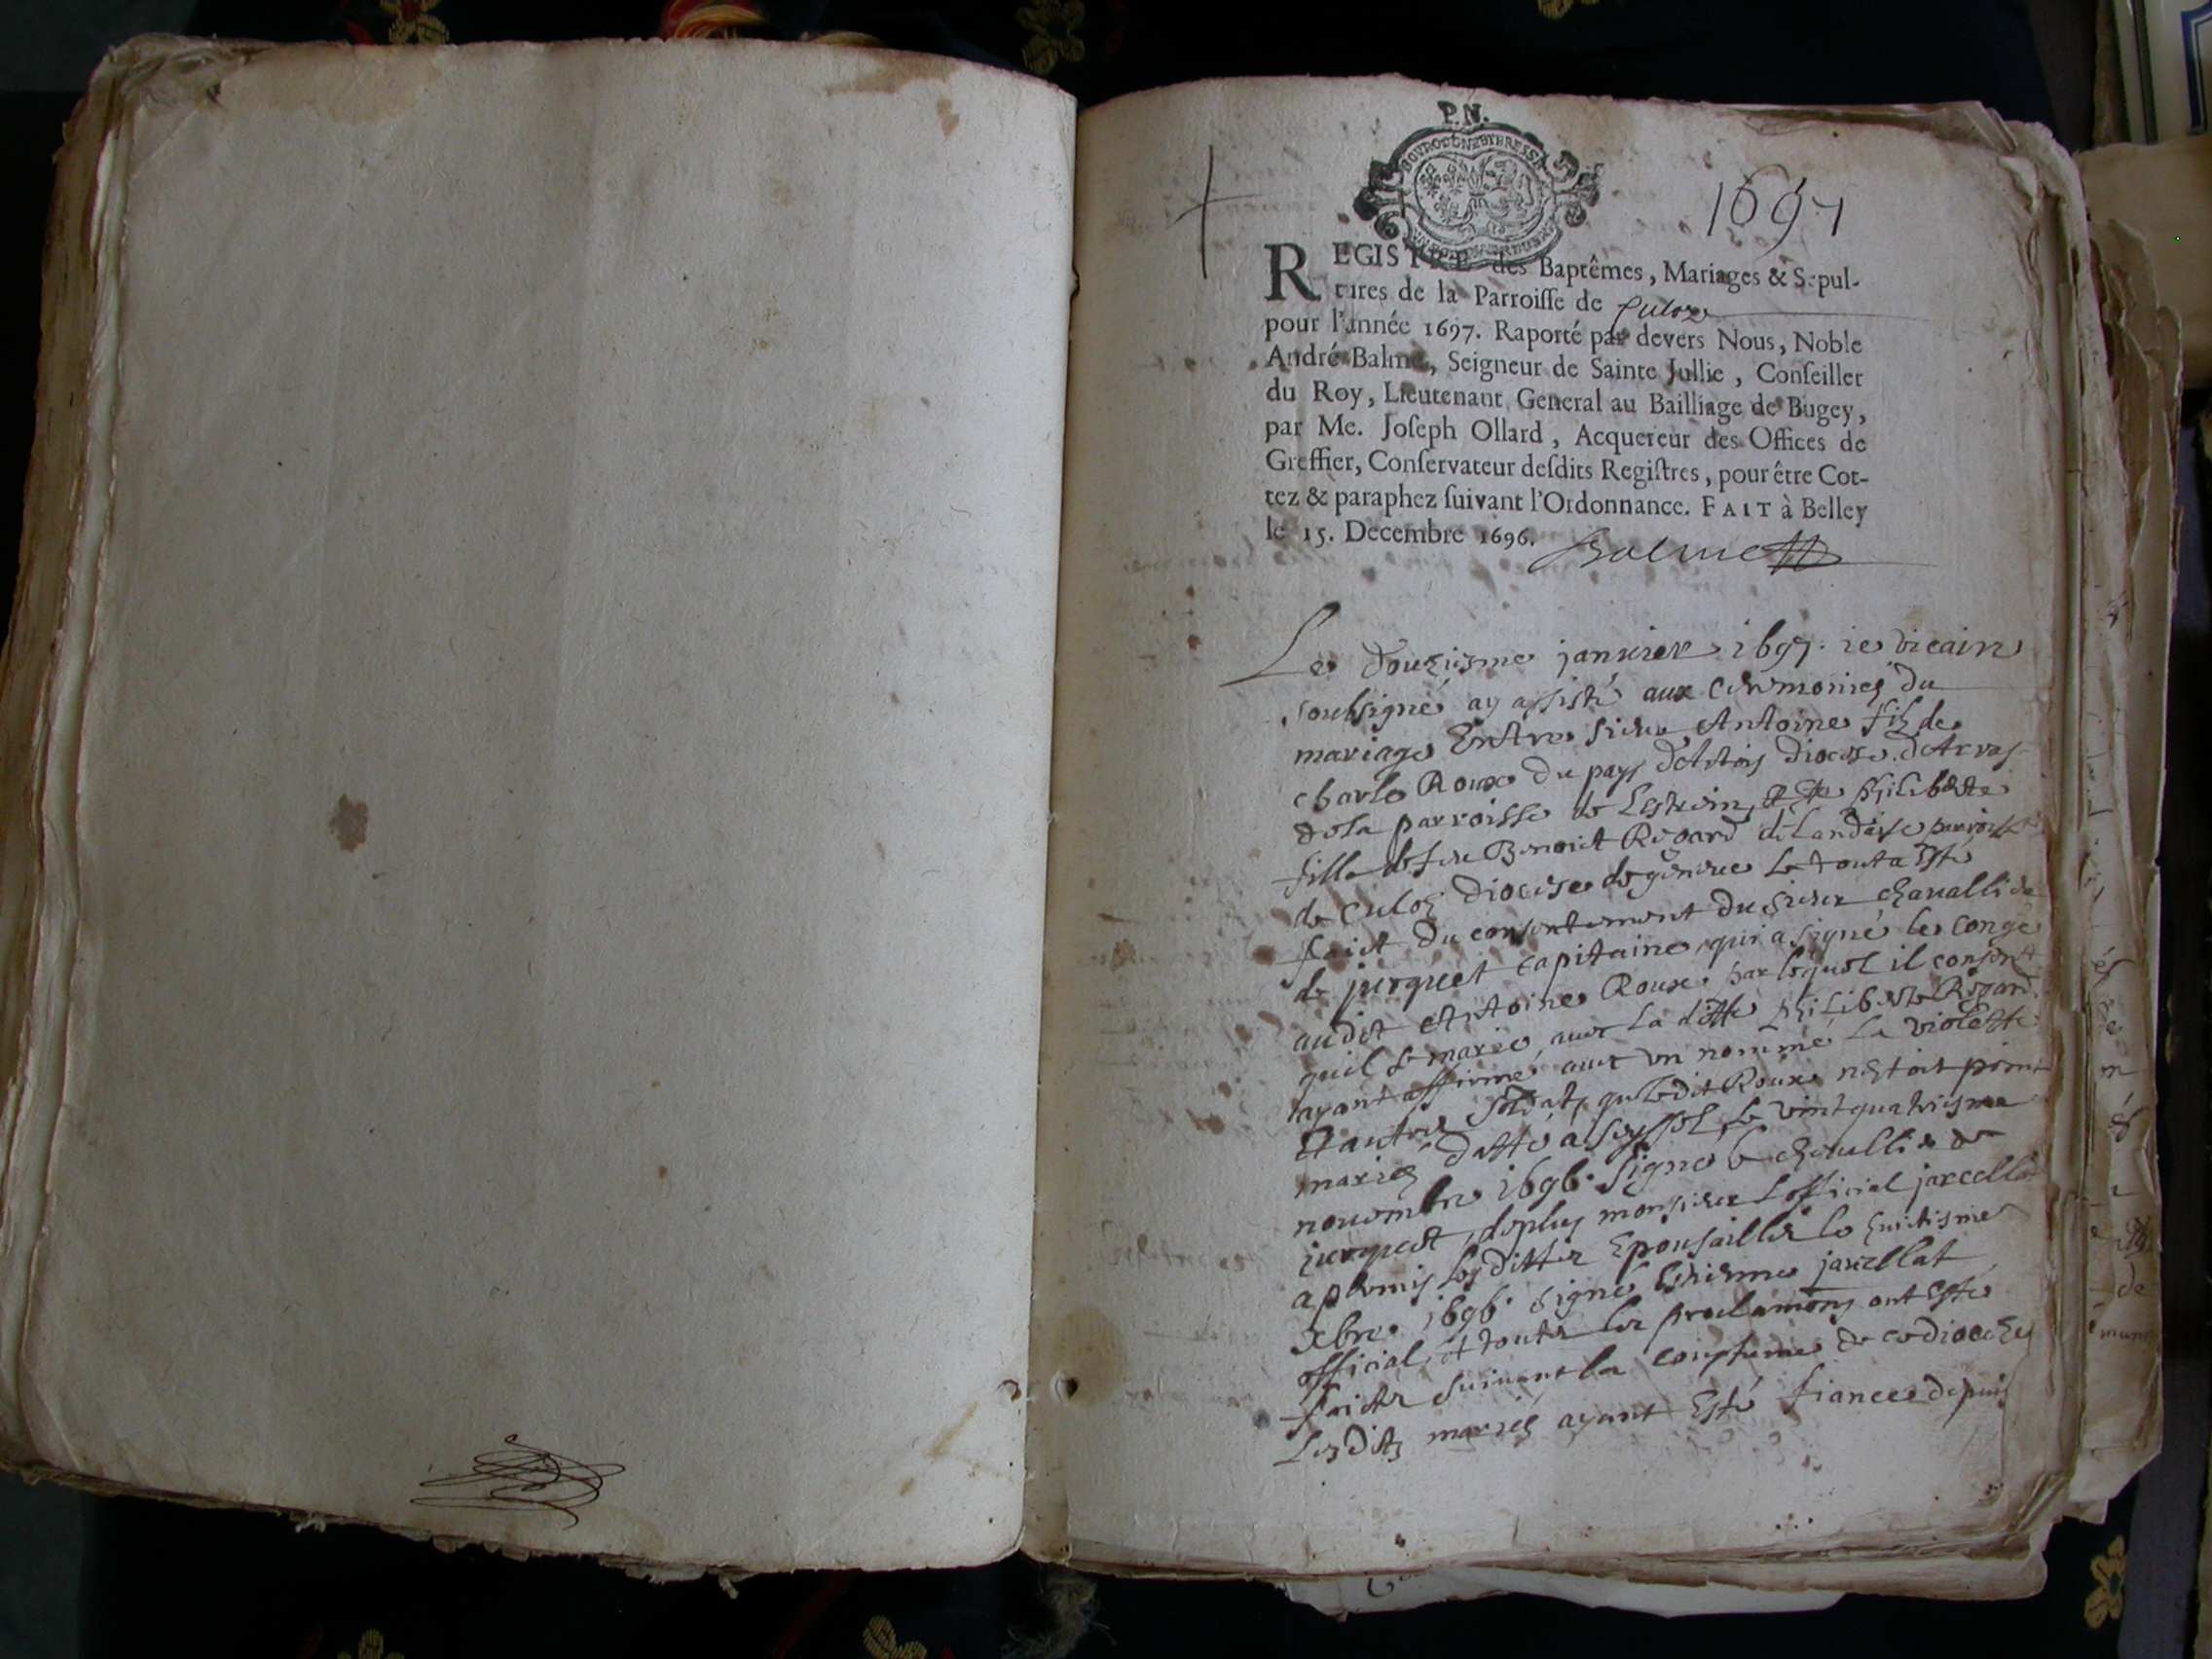 P.N.
BOURGOGNE ET BRESSE
1697
REGISTRE des Baptêmes, Mariages & Sepul-
tures de la Parroisse de Culoz
pour l'année 1697. Raporté par devers Nous, Noble
André Balme, Seigneur de Sainte Jullie, Conseiller
du Roy, Lieutenant General au Bailliage de Bugey,
par Me. Joseph Ollard, Acquereur des Offices de
Greffier, Conservateur desdits Registres, pour être Cot-
tez & paraphez suivant l'Ordonnance. FAIT à Belley
le 15. Decembre 1696.
Balme
Le douziesme janvier 1697. ie vicaire
soubsigné ay assisté aux ceremonies du
mariage Entre sieur Antoine fils de
charle Roux du pays dArtois diocese dArras
de la parroisse de Lestrein et philiberte
fille de feu Benoict Rigard de Landaise parroisse
de culoz diocese de geneve le tout a esté
faict du consentement du sieur chavallier
de jurquet capitaine qui a signé le congé
audit Antoine Roux par lequel il consent
quil se marie avec la ditte philiberte Rigard
ayant affirmé avec un nommé la violette
et autres soldats que ledit Roux nestoit point
mariez datté a seyssel le vint quatriesme
novembre 1696. signe le chevallier de
jurquet, deplus monsieur Lofficial jarcellat
a permis lesdittes Epousailles le huictiesme
xbre 1696. signé Estienne jarcellat
official, et toutes les proclamons ont esté
faictes suivant la coustume de ce diocese
Lesdits mariez ayant Esté fiancés depuis